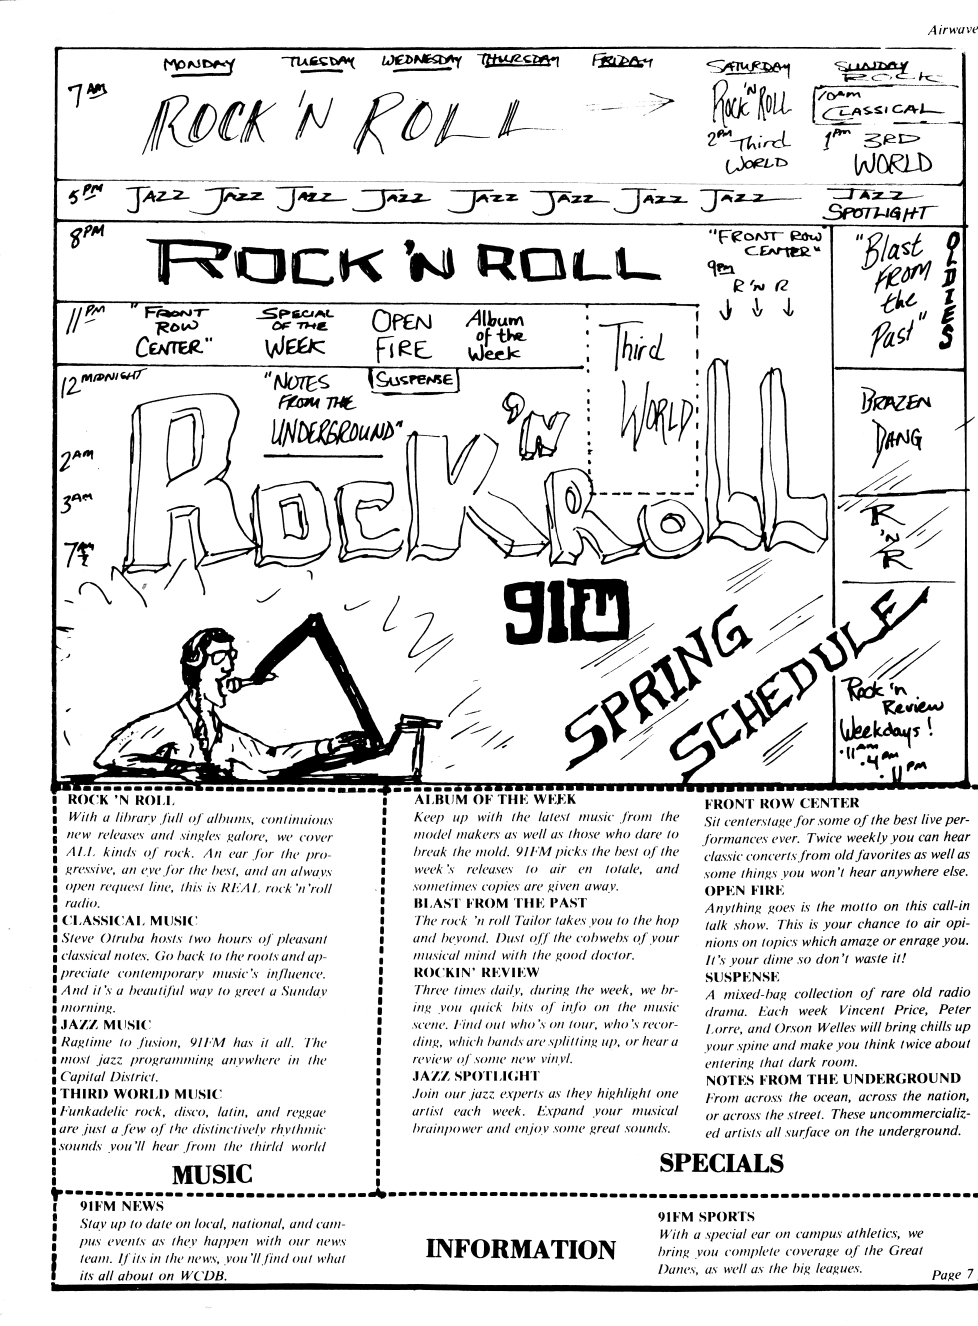 Airwave
MONDAY TUESDAY WEDNESDAY THURSDAY FRIDAY SATURDAY SUNDAY
7 AM
ROCK 'N ROLL
ROCK 'N ROLL
2PM Third
WORLD
ROCK
10AM
CLASSICAL
1PM 3RD
WORLD
5 PM JAZZ JAZZ JAZZ JAZZ JAZZ JAZZ JAZZ JAZZ JAZZ
SPOTLIGHT
8 PM
ROCK 'N ROLL
"FRONT ROW
CENTER"
9PM
R 'N R
"Blast
FROM
the
Past"
OLDIES
11 PM
"FRONT
ROW
CENTER"
SPECIAL
OF THE
WEEK
OPEN
FIRE
Album
of the
Week
Third
WORLD
12 MIDNIGHT
"NOTES
FROM THE
UNDERGROUND"
SUSPENSE
BRAZEN
DANG
2AM
3AM
7AM
ROCK 'N ROLL
R
'N
R
91FM
SPRING
SCHEDULE
Rock 'n
Review
Weekdays!
·11AM
·4PM
·11PM
ROCK 'N ROLL
With a library full of albums, continuious
new releases and singles galore, we cover
ALL kinds of rock. An ear for the pro-
gressive, an eye for the best, and an always
open request line, this is REAL rock'n'roll
radio.
CLASSICAL MUSIC
Steve Otruba hosts two hours of pleasant
classical notes. Go back to the roots and ap-
preciate contemporary music's influence.
And it's a beautiful way to greet a Sunday
morning.
JAZZ MUSIC
Ragtime to fusion, 91FM has it all. The
most jazz programming anywhere in the
Capital District.
THIRD WORLD MUSIC
Funkadelic rock, disco, latin, and reggae
are just a few of the distinctively rhythmic
sounds you'll hear from the thirld world
MUSIC
ALBUM OF THE WEEK
Keep up with the latest music from the
model makers as well as those who dare to
break the mold. 91FM picks the best of the
week's releases to air en totale, and
sometimes copies are given away.
BLAST FROM THE PAST
The rock 'n roll Tailor takes you to the hop
and beyond. Dust off the cobwebs of your
musical mind with the good doctor.
ROCKIN' REVIEW
Three times daily, during the week, we br-
ing you quick bits of info on the music
scene. Find out who's on tour, who's recor-
ding, which bands are splitting up, or hear a
review of some new vinyl.
JAZZ SPOTLIGHT
Join our jazz experts as they highlight one
artist each week. Expand your musical
brainpower and enjoy some great sounds.
FRONT ROW CENTER
Sit centerstage for some of the best live per-
formances ever. Twice weekly you can hear
classic concerts from old favorites as well as
some things you won't hear anywhere else.
OPEN FIRE
Anything goes is the motto on this call-in
talk show. This is your chance to air opi-
nions on topics which amaze or enrage you.
It's your dime so don't waste it!
SUSPENSE
A mixed-bag collection of rare old radio
drama. Each week Vincent Price, Peter
Lorre, and Orson Welles will bring chills up
your spine and make you think twice about
entering that dark room.
NOTES FROM THE UNDERGROUND
From across the ocean, across the nation,
or across the street. These uncommercializ-
ed artists all surface on the underground.
SPECIALS
91FM NEWS
Stay up to date on local, national, and cam-
pus events as they happen with our news
team. If its in the news, you'll find out what
its all about on WCDB.
INFORMATION
91FM SPORTS
With a special ear on campus athletics, we
bring you complete coverage of the Great
Danes, as well as the big leagues.
Page 7